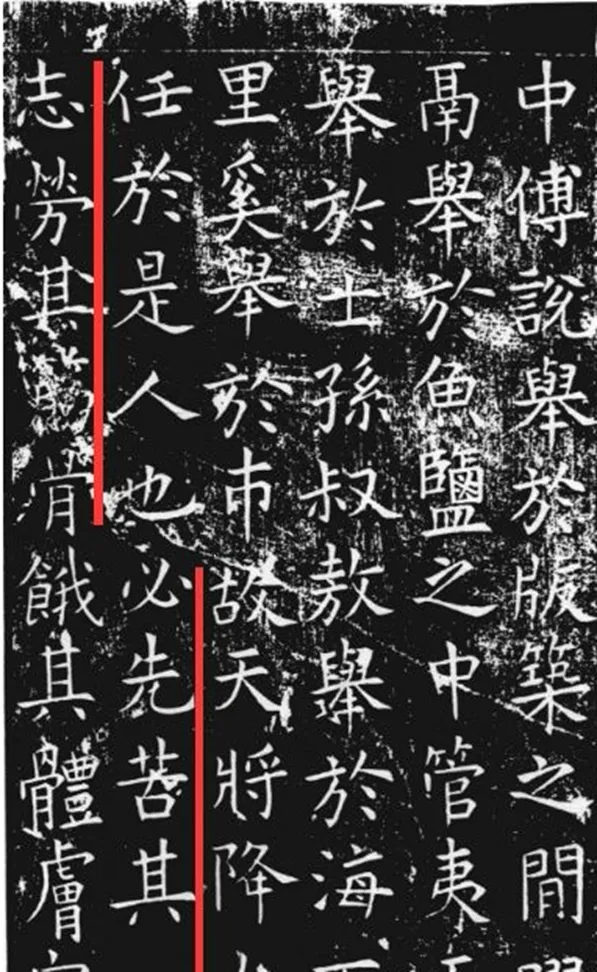 中傅說舉於版築之間
鬲舉於魚鹽之中管夷
舉於士孫叔敖舉於海
里奚舉於市故天將降
任於是人也必先苦其
志勞其筋骨餓其體膚